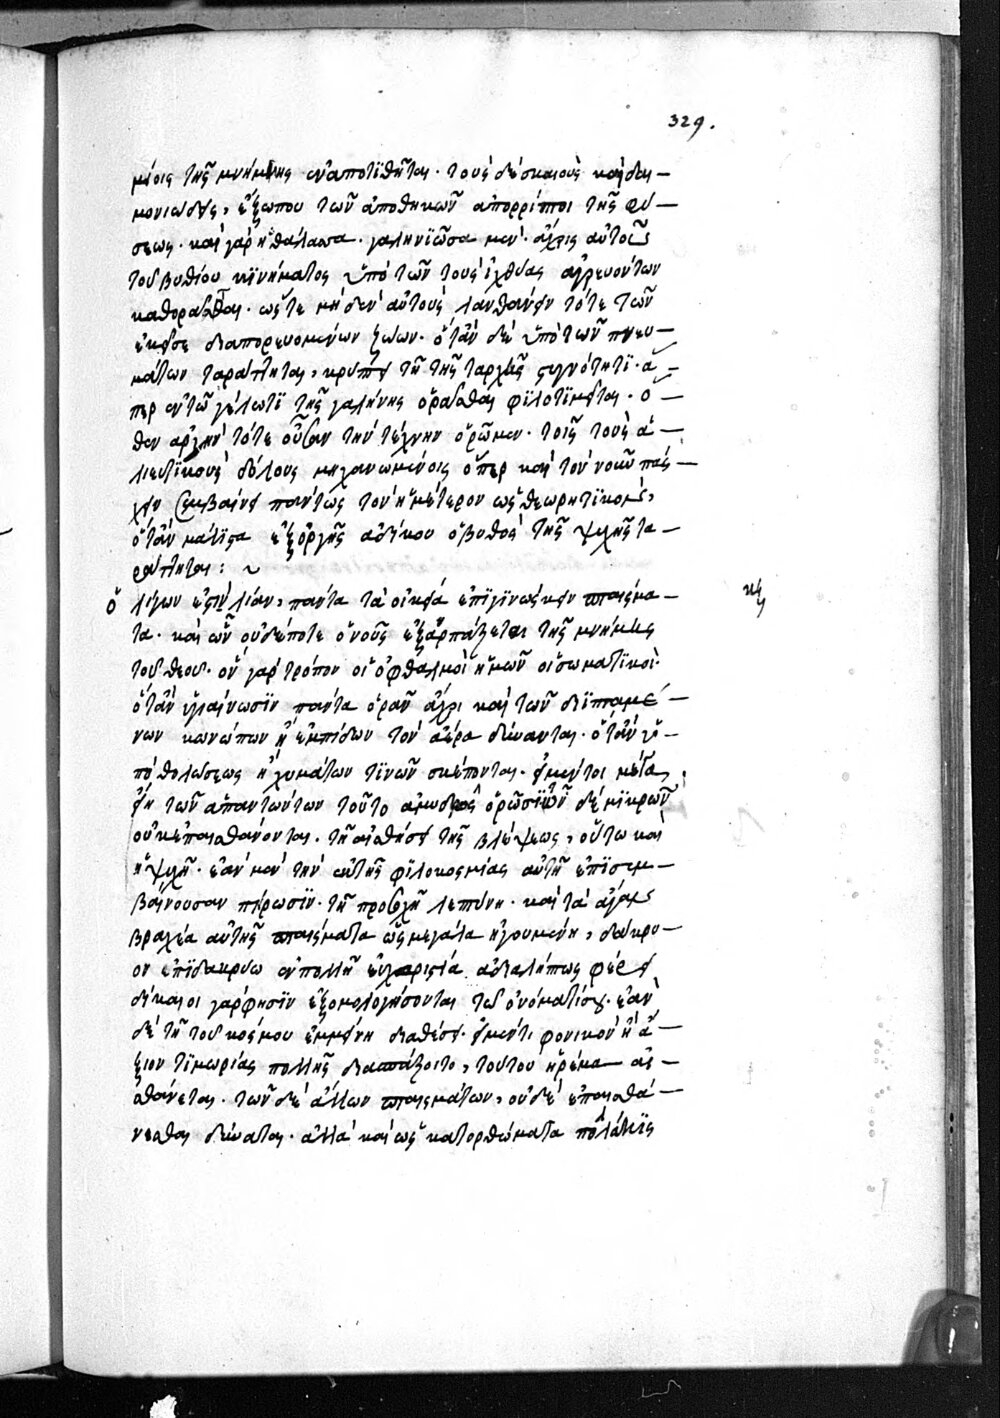 329.
μίοις τῆς μνήμης ἐναποτίθηται· τοὺς δὲ σκαιοὺς καὶ δαι–
μονιώδεις, ἔξω που τῶν ἀποθηκῶν ἀπορρίπτοι τῆς φύ–
σεως· καὶ γὰρ ἡ θάλασσα· γαληνιῶσα μὲν· ἄχρις αὐτοῦ
τοῦ βυθίου κινήματος ὑπὸ τῶν τοὺς ἰχθύας ἀγρευόντων
καθορᾶσθαι· ὥστε μηδὲν αὐτοὺς λανθάνειν τότε τῶν
ἐκεῖσε διαπορευομένων ζώων· ὅταν δὲ ὑπὸ τῶν πνευ–
μάτων ταράττηται, κρύπτει τῇ τῆς ταραχῆς στυγνότητι· ἅ–
περ ἐν τῷ γέλωτι τῆς γαλήνης ὁρᾶσθαι φιλοτιμεῖται· ὅ–
θεν ἀργὴν τότε οὖσαν τὴν τέχνην ὁρῶμεν· τοῖς τοὺς ἁ–
λιευτικοὺς δόλους μηχανωμένοις ὅπερ καὶ τὸν νοῦν πάσ–
χειν συμβαίνει πάντως τὸν ἡμέτερον ὡς θεωρητικόν,
ὅταν μάλιστα ἐξ ὀργῆς ἀδίκου ὁ βυθὸς τῆς ψυχῆς τα–
ράττηται: ~
ὀλίγων ἐστὶν λίαν, πάντα τὰ οἰκεῖα ἐπιγινώσκειν πταίσμα–
τα· καὶ ὧν οὐδέποτε ὁ νοῦς ἐξαρπάζεται τῆς μνήμης
τοῦ θεοῦ· ὃν γὰρ τρόπον οἱ ὀφθαλμοὶ ἡμῶν οἱ σωματικοί·
ὅταν ὑγιαίνωσιν πάντα ὁρᾶν ἄχρι καὶ τῶν διϊπταμέ–
νων κωνώπων ἢ ἐμπίδων τὸν ἀέρα δύνανται· ὅταν ὑ–
πὸ θολώσεως ἢ χυμάτων τινῶν σκέπονται· εἰ μέντοι μέγα
εἴη τῶν ἀπαντώντων τοῦτο ἀμυδρῶς ὁρῶσιν τῶν δὲ μικρῶν
οὐκ ἐπαισθάνονται· τῇ αἰσθήσει τῆς βλέψεως, οὕτω καὶ
ἡ ψυχὴ· ἐὰν μὲν τὴν ἐκ τῆς φιλοκοσμίας αὐτῇ ἐπισυμ–
βαίνουσαν πήρωσιν· τῇ προσοχῇ λεπτύνῃ· καὶ τὰ ἄγαν
βραχέα αὐτῆς πταίσματα ὡς μεγάλα ἡγουμένη, δάκρυ–
ον ἐπὶ δακρύω ἐν πολλῇ εὐχαριστίᾳ ἀδιαλήπτως φέρει
δίκαιοι γάρ φησιν ἐξομολογήσονται τῷ ὀνόματί σου· ἐὰν
δὲ τῇ τοῦ κόσμου ἐμμένῃ διαθέσει· εἰ μέν τι φονικὸν ἢ ἄ–
ξιον τιμωρίας πολλῆς διαπράξοιτο, τούτου ἠρέμα αἰ–
σθάνεται· τῶν δὲ ἄλλων πταισμάτων, οὐδὲ ἐπαισθά–
νεσθαι δύναται· ἀλλὰ καὶ ὡς κατορθώματα πολλάκις